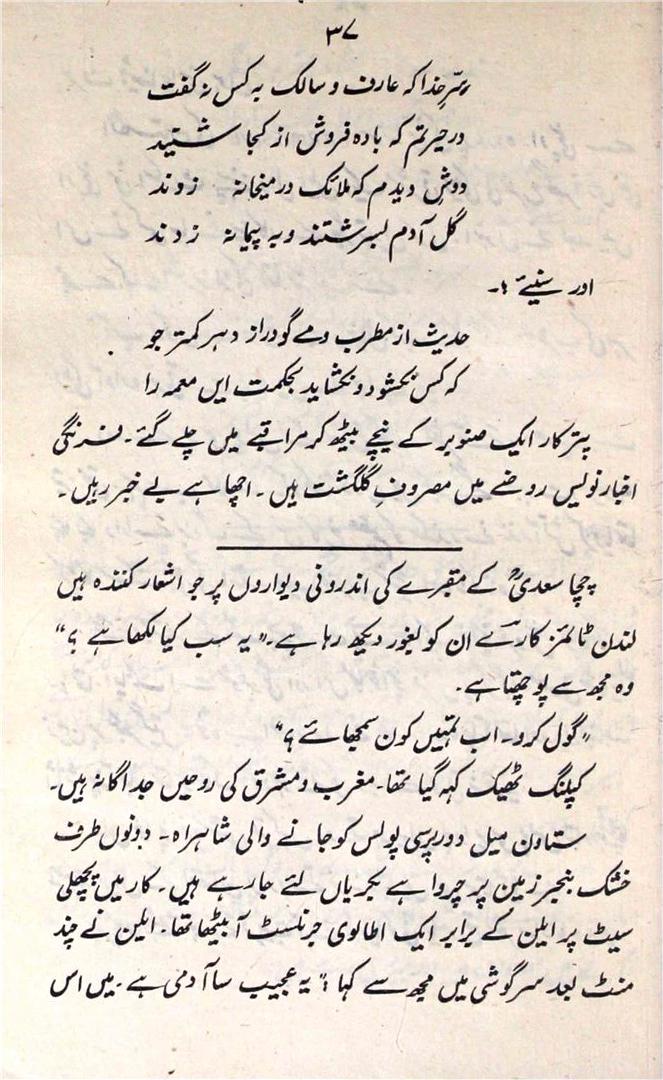 ۳۷
سرِّ خدا کہ عارف و سالک بہ کس نہ گفت
در حیرتم کہ بادہ فروش از کجا شنید
دوش دیدم کہ ملائک در میخانہ زدند
گل آدم بسرشتند و بہ پیمانہ زدند
اور سنیئے :۔
حدیث از مطرب و مے گو دراز دہر کمتر جو
کہ کس نکشود و نکشاید بحکمت ایں معمہ را
پترکار ایک صنوبر کے نیچے بیٹھ کر مراقبے میں چلے گئے۔ فرنگی
اخبار نویس روضے میں مصروفِ گلگشت ہیں۔ اچھا ہے بے خبر رہیں۔
چچا سعدیؒ کے مقبرے کی اندرونی دیواروں پر جو اشعار کندہ ہیں
لندن ٹائمز کار سے ان کو بغور دیکھ رہا ہے۔ ”یہ سب کیا لکھا ہے ؟“
وہ مجھ سے پوچھتا ہے۔
”گول کرو۔ اب تمہیں کون سمجھائے ؟“
کپلنگ ٹھیک کہہ گیا تھا۔ مغرب و مشرق کی روحیں جداگانہ ہیں۔
ستاون میل دور پرسی پولس کو جانے والی شاہراہ۔ دونوں طرف
خشک بنجر زمین پر چرواہے بکریاں لئے جا رہے ہیں۔ کار میں پچھلی
سیٹ پر ایلن کے برابر ایک اطالوی جرنلسٹ آ بیٹھا تھا۔ ایلن نے چند
منٹ بعد سرگوشی میں مجھ سے کہا : ”یہ عجیب سا آدمی ہے۔ میں اس